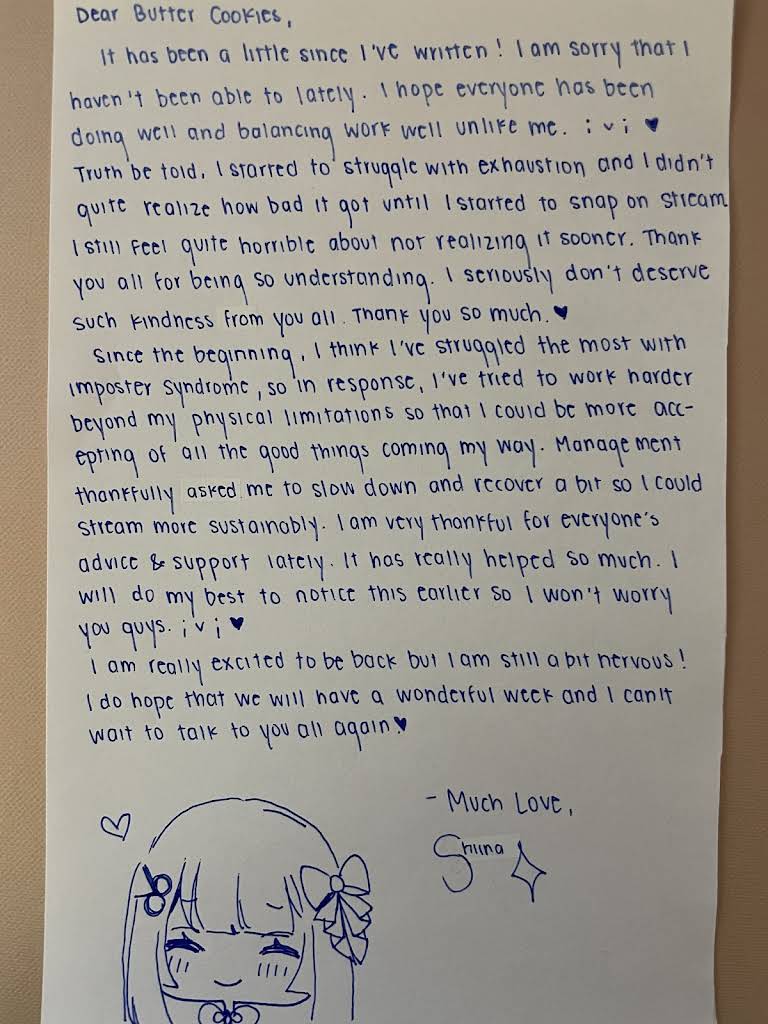 Dear Butter Cookies,
It has been a little since I've written! I am sorry that I
haven't been able to lately. I hope everyone has been
doing well and balancing work well unlike me. ; v ; ♥
Truth be told, I starred to struggle with exhaustion and I didn't
quite realize how bad it got until I started to snap on stream.
I still feel quite horrible about not realizing it sooner. Thank
you all for being so understanding. I seriously don't deserve
such kindness from you all. Thank you so much. ♥
Since the beginning, I think I've struggled the most with
imposter syndrome, so in response, I've tried to work harder
beyond my physical limitations so that I could be more acc-
epting of all the good things coming my way. Management
thankfully asked me to slow down and recover a bit so I could
stream more sustainably. I am very thankful for everyone's
advice & support lately. It has really helped so much. I
will do my best to notice this earlier so I won't worry
you guys. ; v ; ♥
I am really excited to be back but I am still a bit nervous!
I do hope that we will have a wonderful week and I can't
wait to talk to you all again! ♥
- Much Love,
Shiina